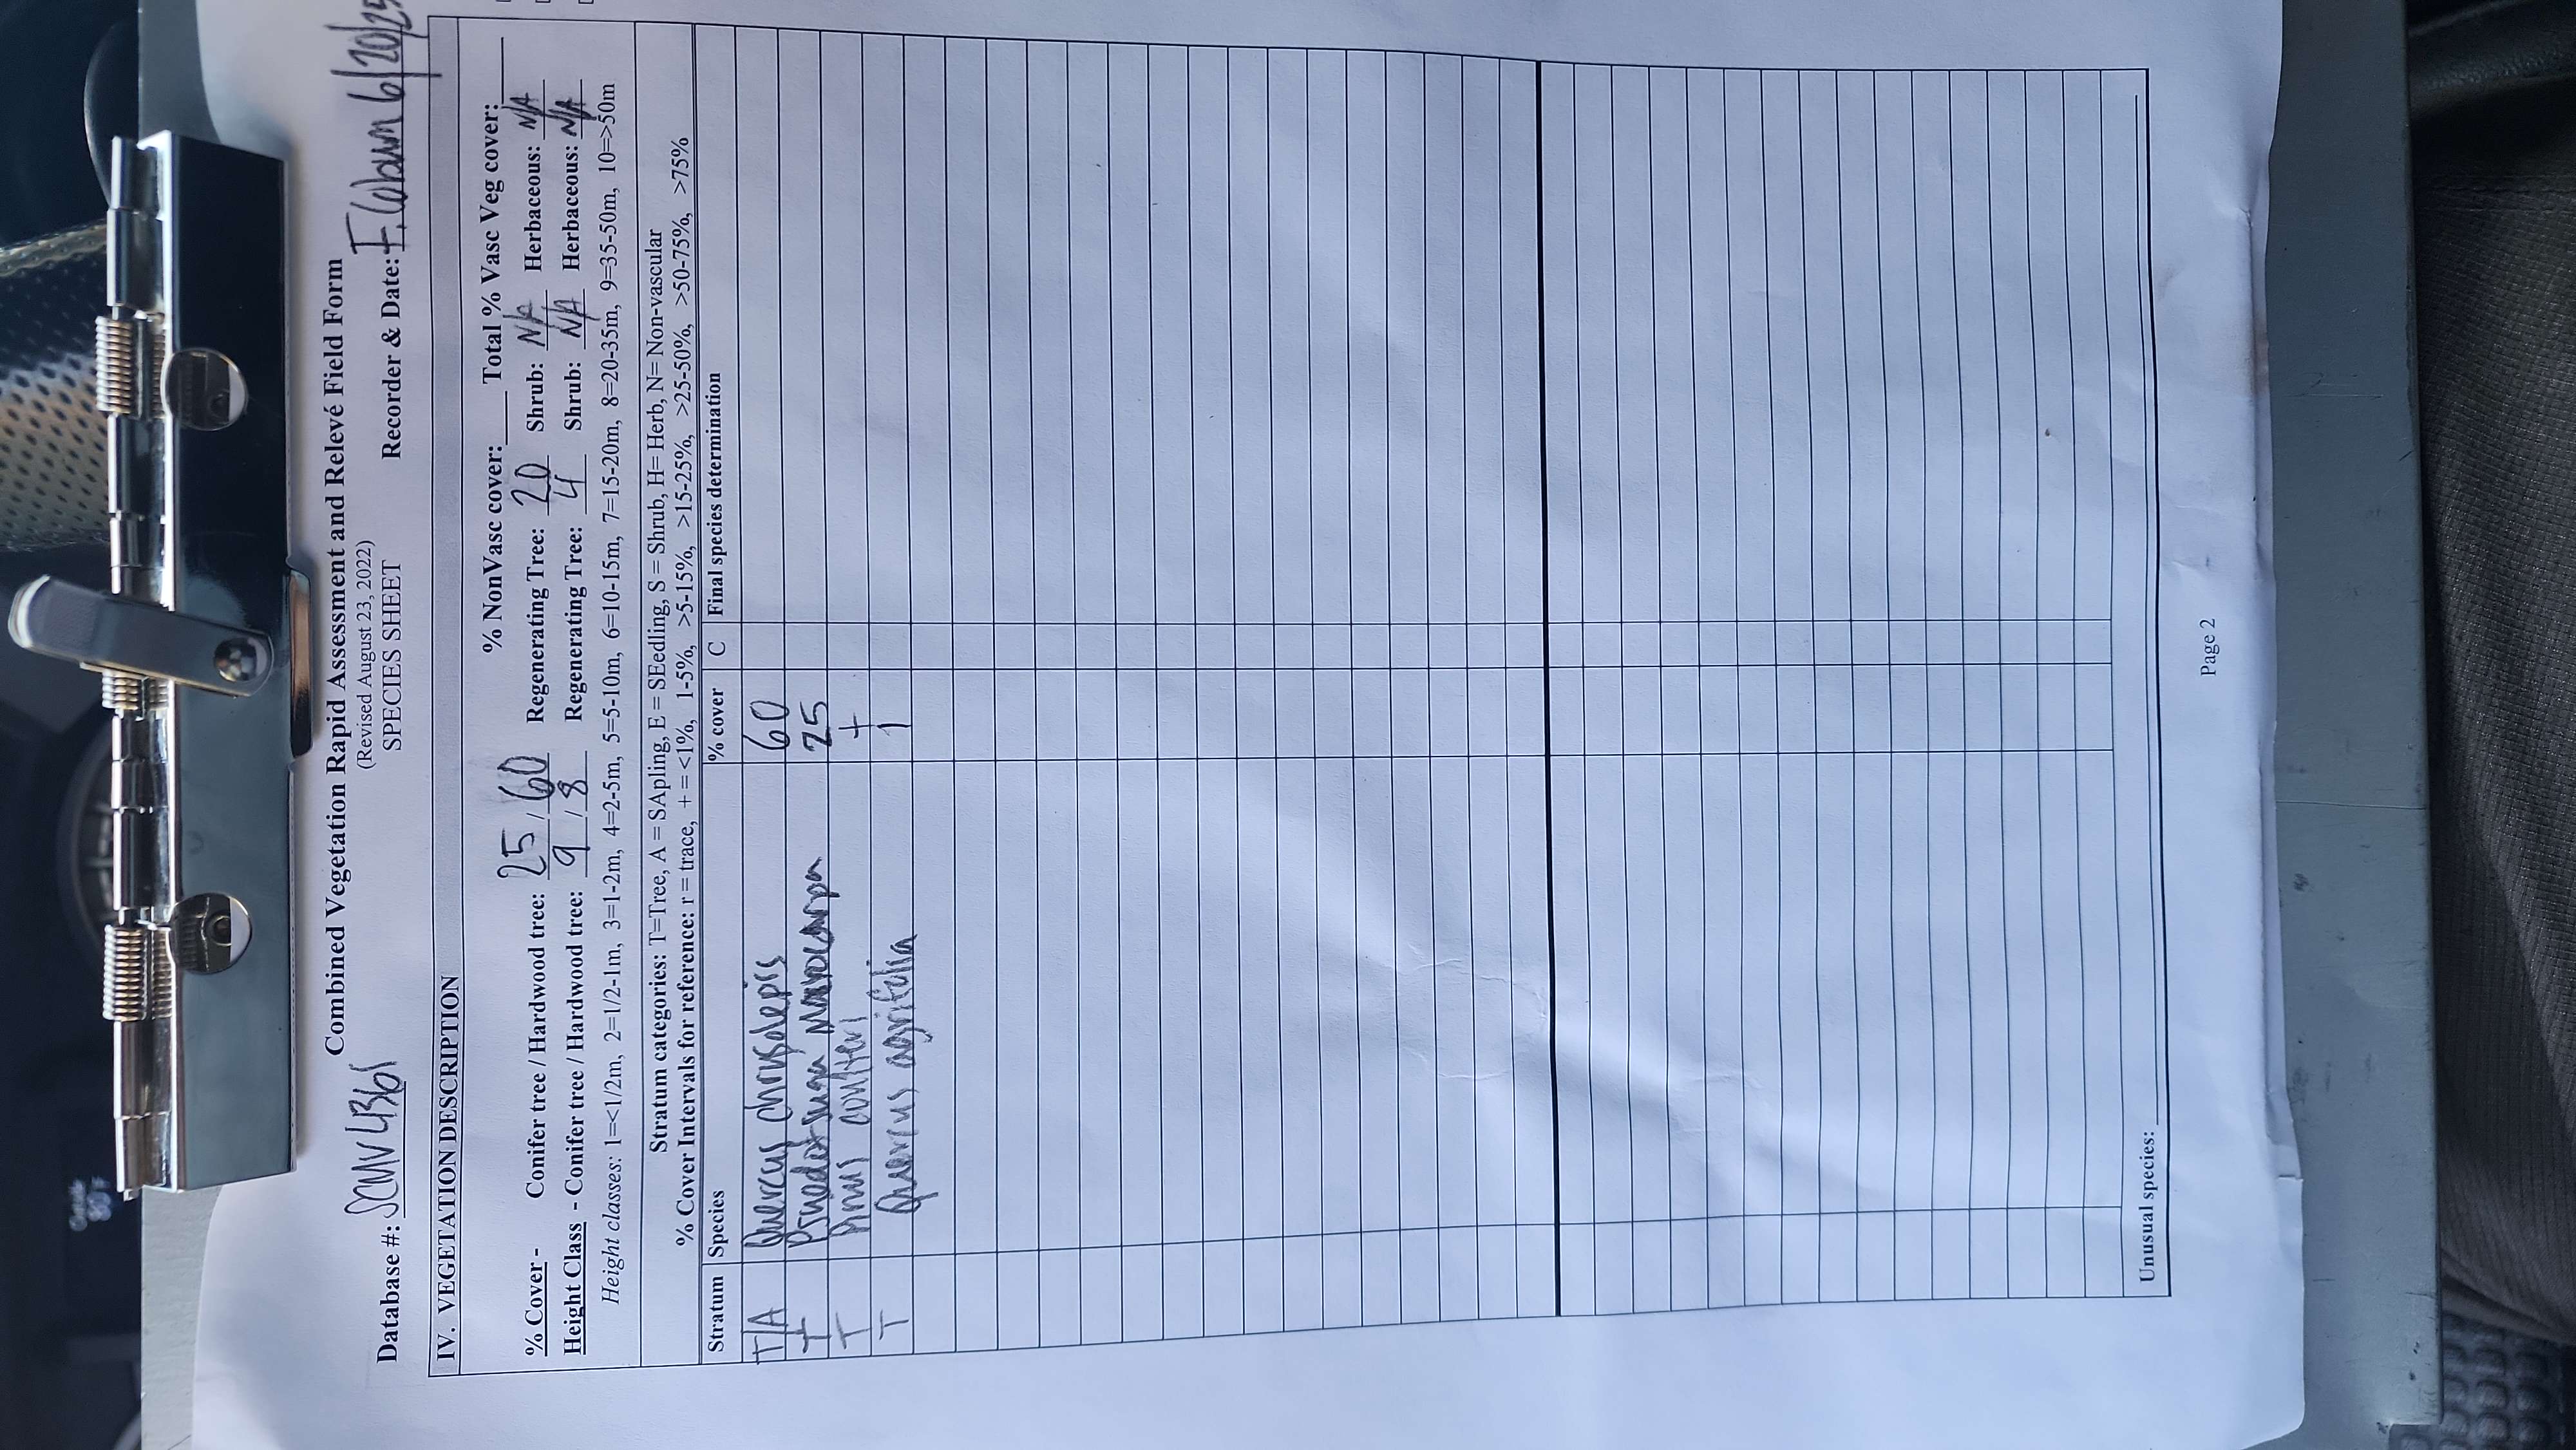 Combined Vegetation Rapid Assessment and Relevé Field Form
(Revised August 23, 2022)
SPECIES SHEET
Database #: Recorder & Date: 6/20/25
IV. VEGETATION DESCRIPTION
% NonVasc cover: Total % Vasc Veg cover:
% Cover - Conifer tree / Hardwood tree: 25 / 60 Regenerating Tree: 20 Shrub: N/A Herbaceous: N/A
Height Class - Conifer tree / Hardwood tree: 9 / 8 Regenerating Tree: 4 Shrub: N/A Herbaceous: N/A
Height classes: 1=<1/2m, 2=1/2-1m, 3=1-2m, 4=2-5m, 5=5-10m, 6=10-15m, 7=15-20m, 8=20-35m, 9=35-50m, 10=>50m
Stratum categories: T=Tree, A = SApling, E = SEedling, S = Shrub, H= Herb, N= Non-vascular
% Cover Intervals for reference: r = trace, + = <1%, 1-5%, >5-15%, >15-25%, >25-50%, >50-75%, >75%
Stratum Species % cover C Final species determination
T/A Quercus chrysolepis 60
T Psuedotsuga Macrocarpa 25
T Pinus coulteri +
T Quercus agrifolia 1
Unusual species:
Page 2